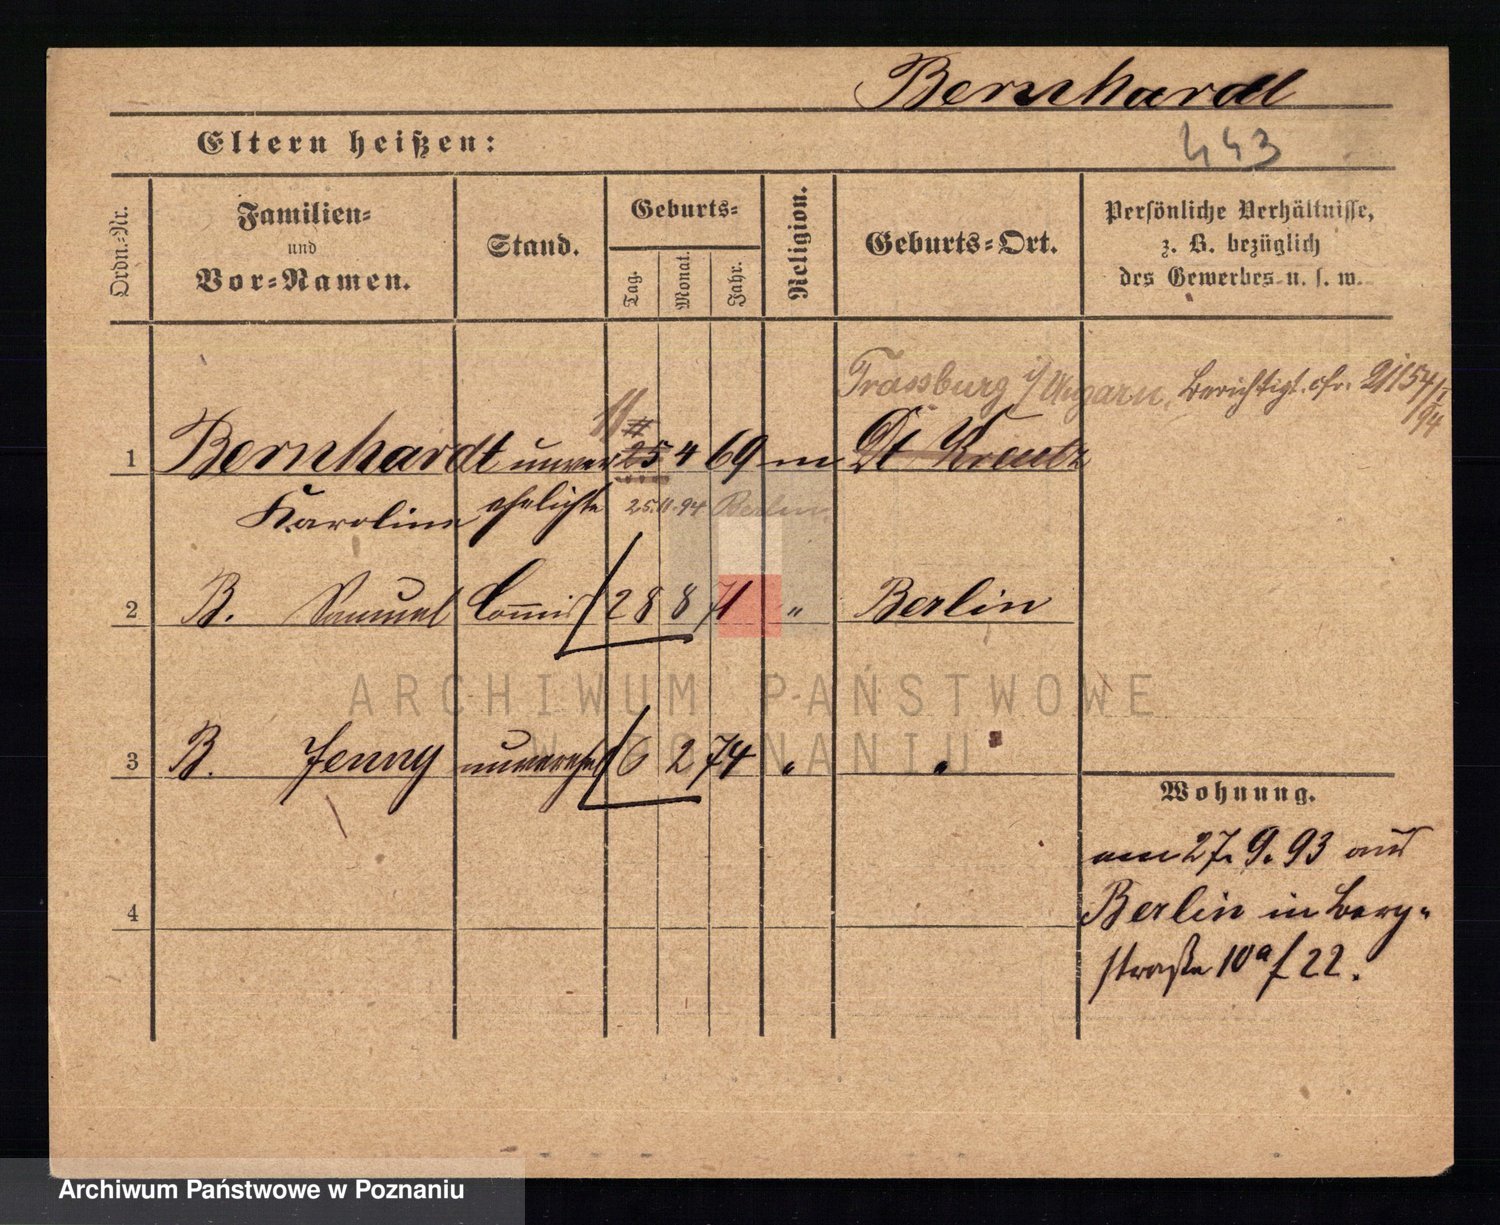 Bernhardt
Eltern heißen:
443
Ordn.-Nr.
Familien-
und
Vor-Namen.
Stand.
Geburts-
Tag.
Monat.
Jahr.
Religion.
Geburts-Ort.
Persönliche Verhältnisse,
z. B. bezüglich
des Gewerbes u. s. w.
Trassburg i/ Ungarn, berichtigt. cfr. 21154/I
/94
11
1 Bernhardt unver 25 4 69 m Dt Kreutz
Karoline ehelichte 25.11.94 Berlin.
2 B. Samuel Commis 28 8 71 " Berlin
3 B. Jenny unverehel 6 2 74 " "
Wohnung.
am 27. 9. 93 aus
4 Berlin in Berg-
straße 10a f 22.
ARCHIWUM PAŃSTWOWE
W POZNANIU
Archiwum Państwowe w Poznaniu